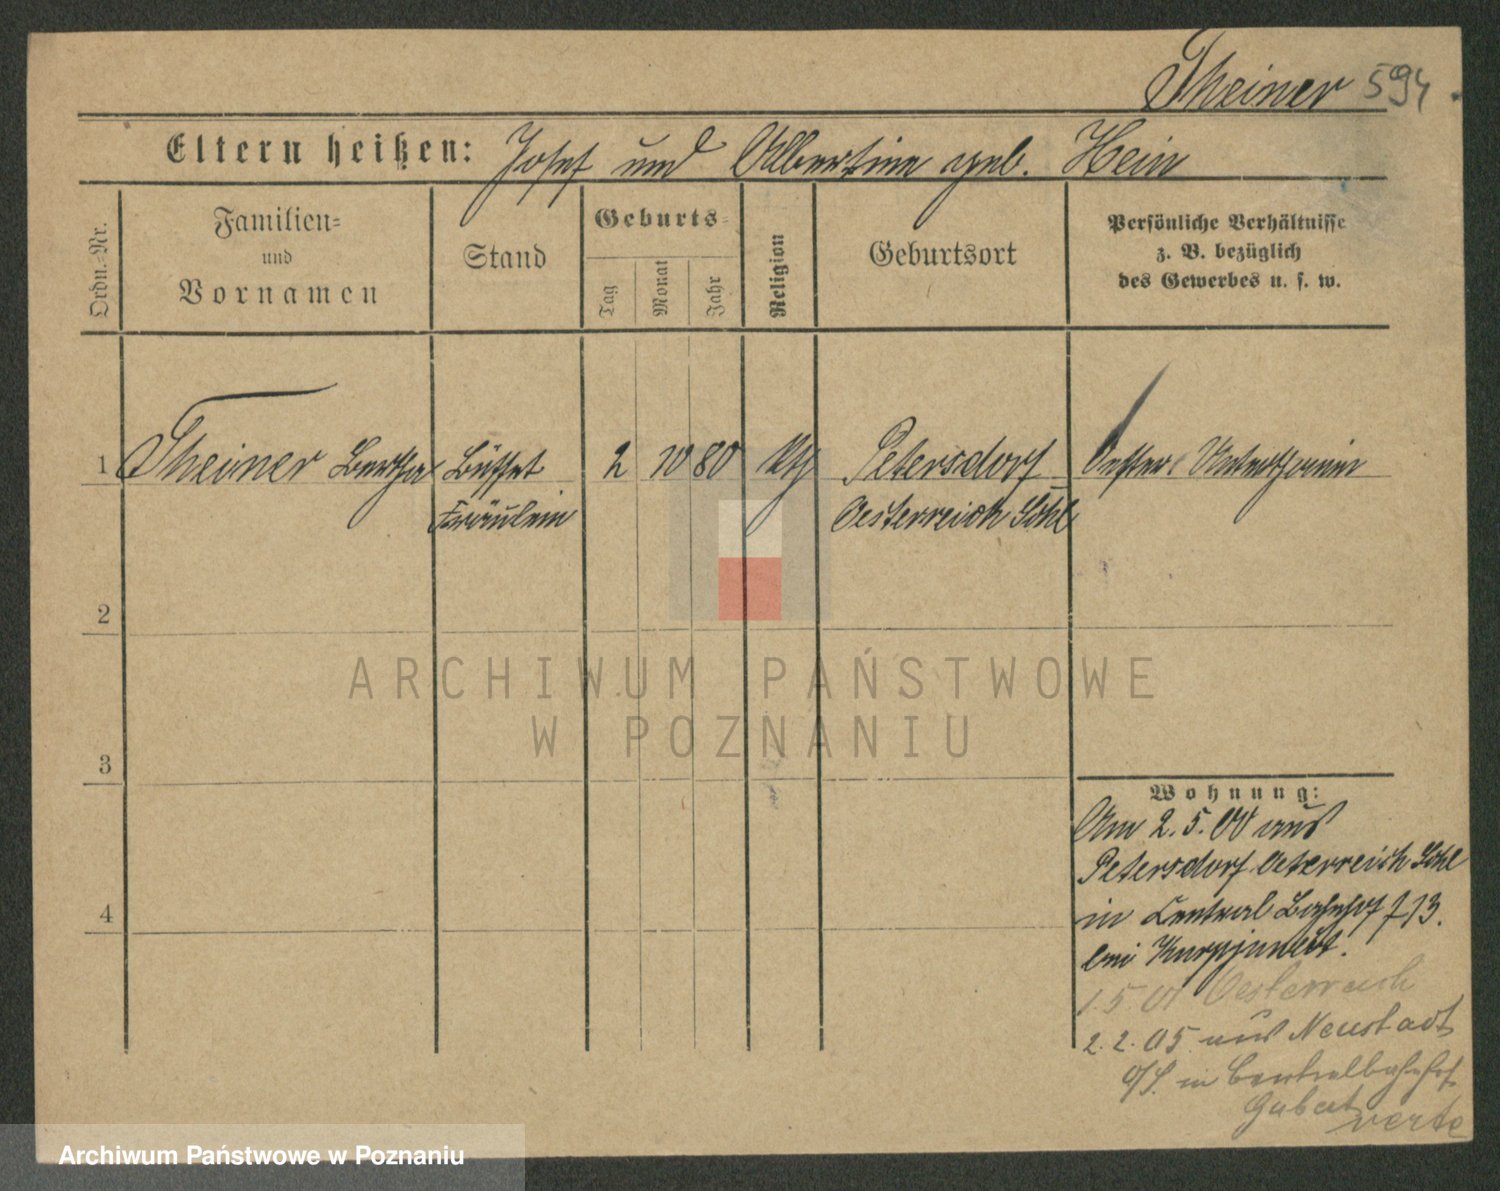 Theiner 594
Eltern heißen: Josef und Albertine geb. Hein
Ordn.-Nr.
Familien-
und
Vornamen
Stand
Geburts-
Tag
Monat
Jahr
Religion
Geburtsort
Persönliche Verhältnisse
z. B. bezüglich
des Gewerbes u. s. w.
1 Theiner Bertha Büffet 2 10 80 kth Petersdorf Oester. Unterthanin
Fräulein Oesterreich Schl
2
3
4
ARCHIWUM PAŃSTWOWE
W POZNANIU
Wohnung:
Am 2.5.00 aus
Petersdorf Oesterreich Schl
in Central Bahnhof 713.
bei
1.5.01 Oesterreich
2.2.05 aus Neustadt
O/S. in Centralbahnhof
verte
Archiwum Państwowe w Poznaniu